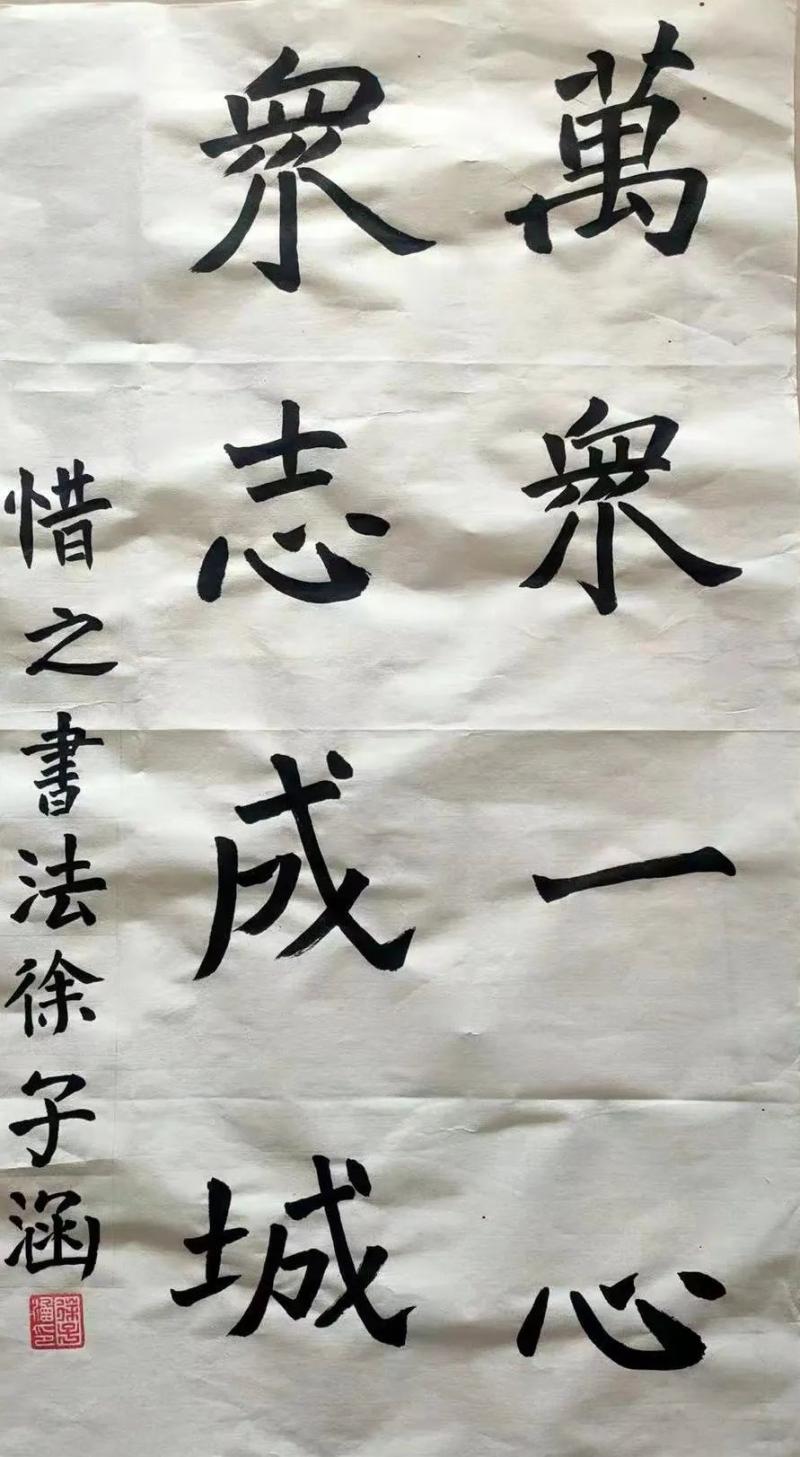 萬衆一心
衆志成城
惜之書法徐子涵